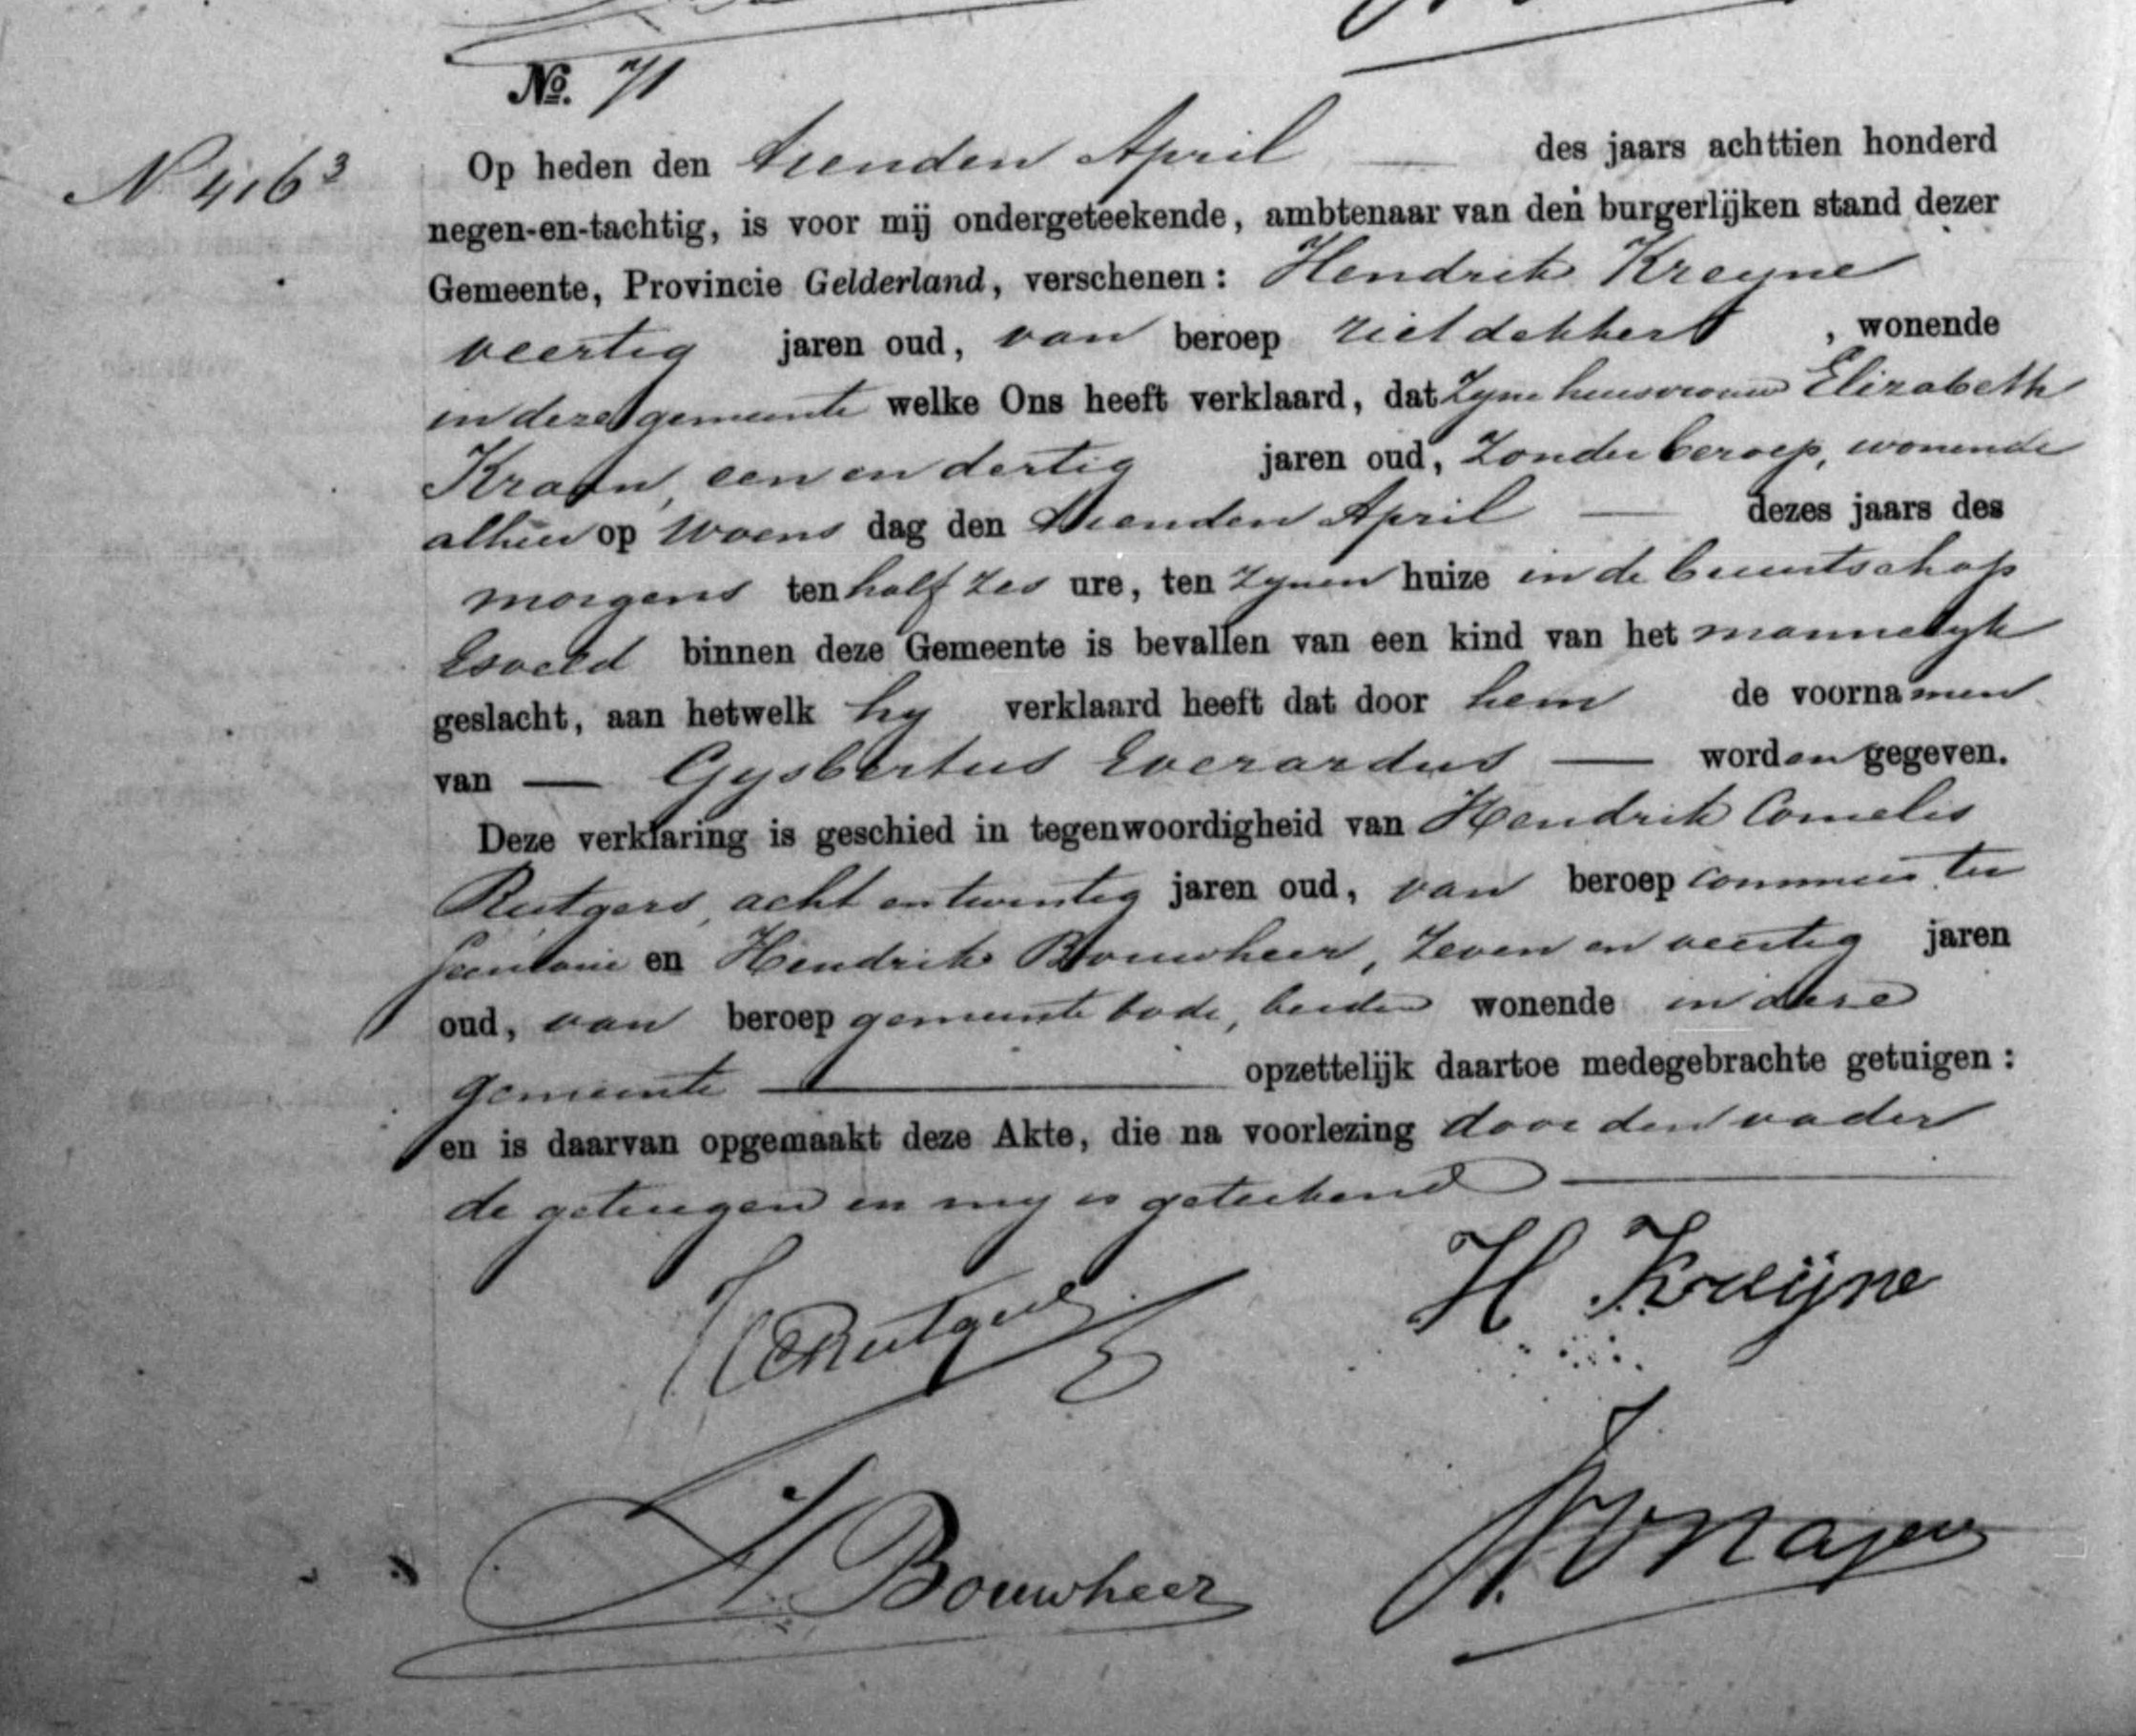 No. 71
N 416 3
Op heden den tienden April — des jaars achttien honderd
negen-en-tachtig, is voor mij ondergeteekende, ambtenaar van den burgerlijken stand dezer
Gemeente, Provincie Gelderland, verschenen: Hendrik Kreyne
veertig jaren oud, van beroep rietdekker, wonende
in deze gemeente welke Ons heeft verklaard, dat zyne huisvrouw Elizabeth
Kraan, een en dertig jaren oud, zonder beroep, wonende
alhier op Woensdag den tienden April — dezes jaars des
morgens ten half zes ure, ten zynen huize in de buurtschap
Esveld binnen deze Gemeente is bevallen van een kind van het mannelyk
geslacht, aan hetwelk hy verklaard heeft dat door hem de voornamen
van — Gysbertus Everardus — worden gegeven.
Deze verklaring is geschied in tegenwoordigheid van Hendrik Cornelis
Rutgers, acht en twintig jaren oud, van beroep commies ter
secretarie en Hendrik Bouwheer, zeven en veertig jaren
oud, van beroep gemeente bode, beiden wonende in deze
gemeente — opzettelijk daartoe medegebrachte getuigen:
en is daarvan opgemaakt deze Akte, die na voorlezing door den vader
de getuigen en my is geteekend —
HCRutgers
H Kreijne
H Bouwheer